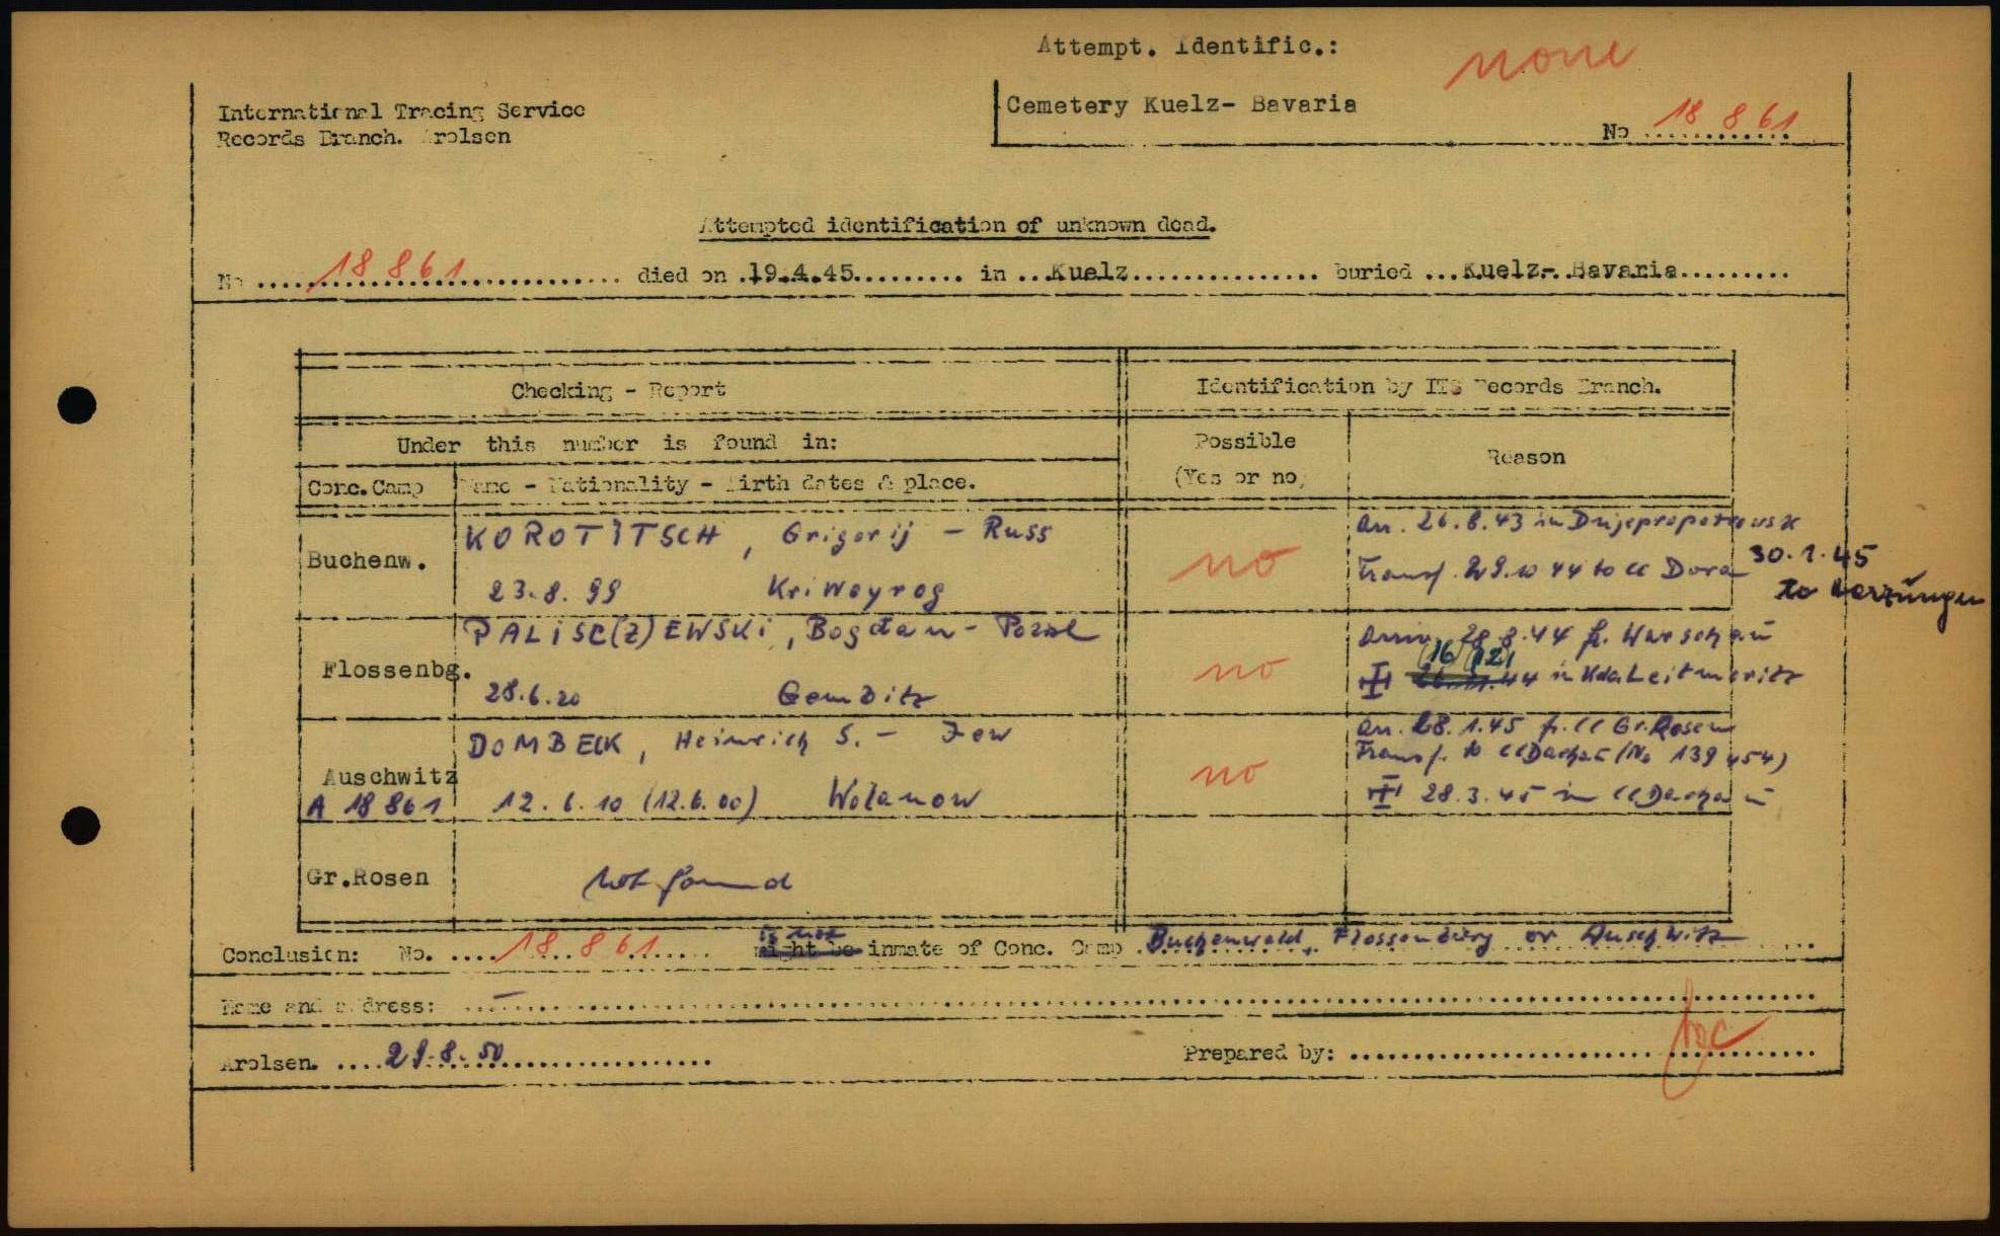 Attempt. Identific.: none
International Tracing Service
Records Branch. Arolsen
Cemetery Kuelz- Bavaria
No ............ 18 861
Attempted identification of unknown dead.
No .... 18 861 ............ died on .19.4.45......... in ...Kuelz............... buried ...Kuelz-. Bavaria.........
Checking - Report
Identification by ITS Records Branch.
Under this number is found in:
Possible
(Yes or no)
Reason
Conc.Camp
Name - Nationality - Birth dates & place.
Buchenw.
KOROTITSCH, Grigorij - Russ
23.8.99 Kriwoyrog
no
arr. 26.8.43 in Dnjepropetrowsk
Transf. 29.10 44 to CC Dora 30.1.45
to
Flossenbg.
PALISC(Z)EWSKI, Bogdan - Poral
28.6.20 Gembitz
no
28.8.44 fr. Warschau
16 12
44 in Kdo Leitmeritz
Auschwitz
A 18 861
DOMBECK, Heinrich S. - Jew
12.6.10 (12.6.00) Wolanow
no
arr. 28.1.45 fr. CC Gr.Rosen
Transf. to CC Dachau (No 139 454)
28.3.45 in CC Dachau
Gr.Rosen
not found
Conclusion: No. .... 18 861 ....... is not
might be inmate of Conc. Camp Buchenwald, Flossenburg or Auschwitz ...
Name and address: —
Arolsen. .... 29.8.50 ....................
Prepared by: ........................